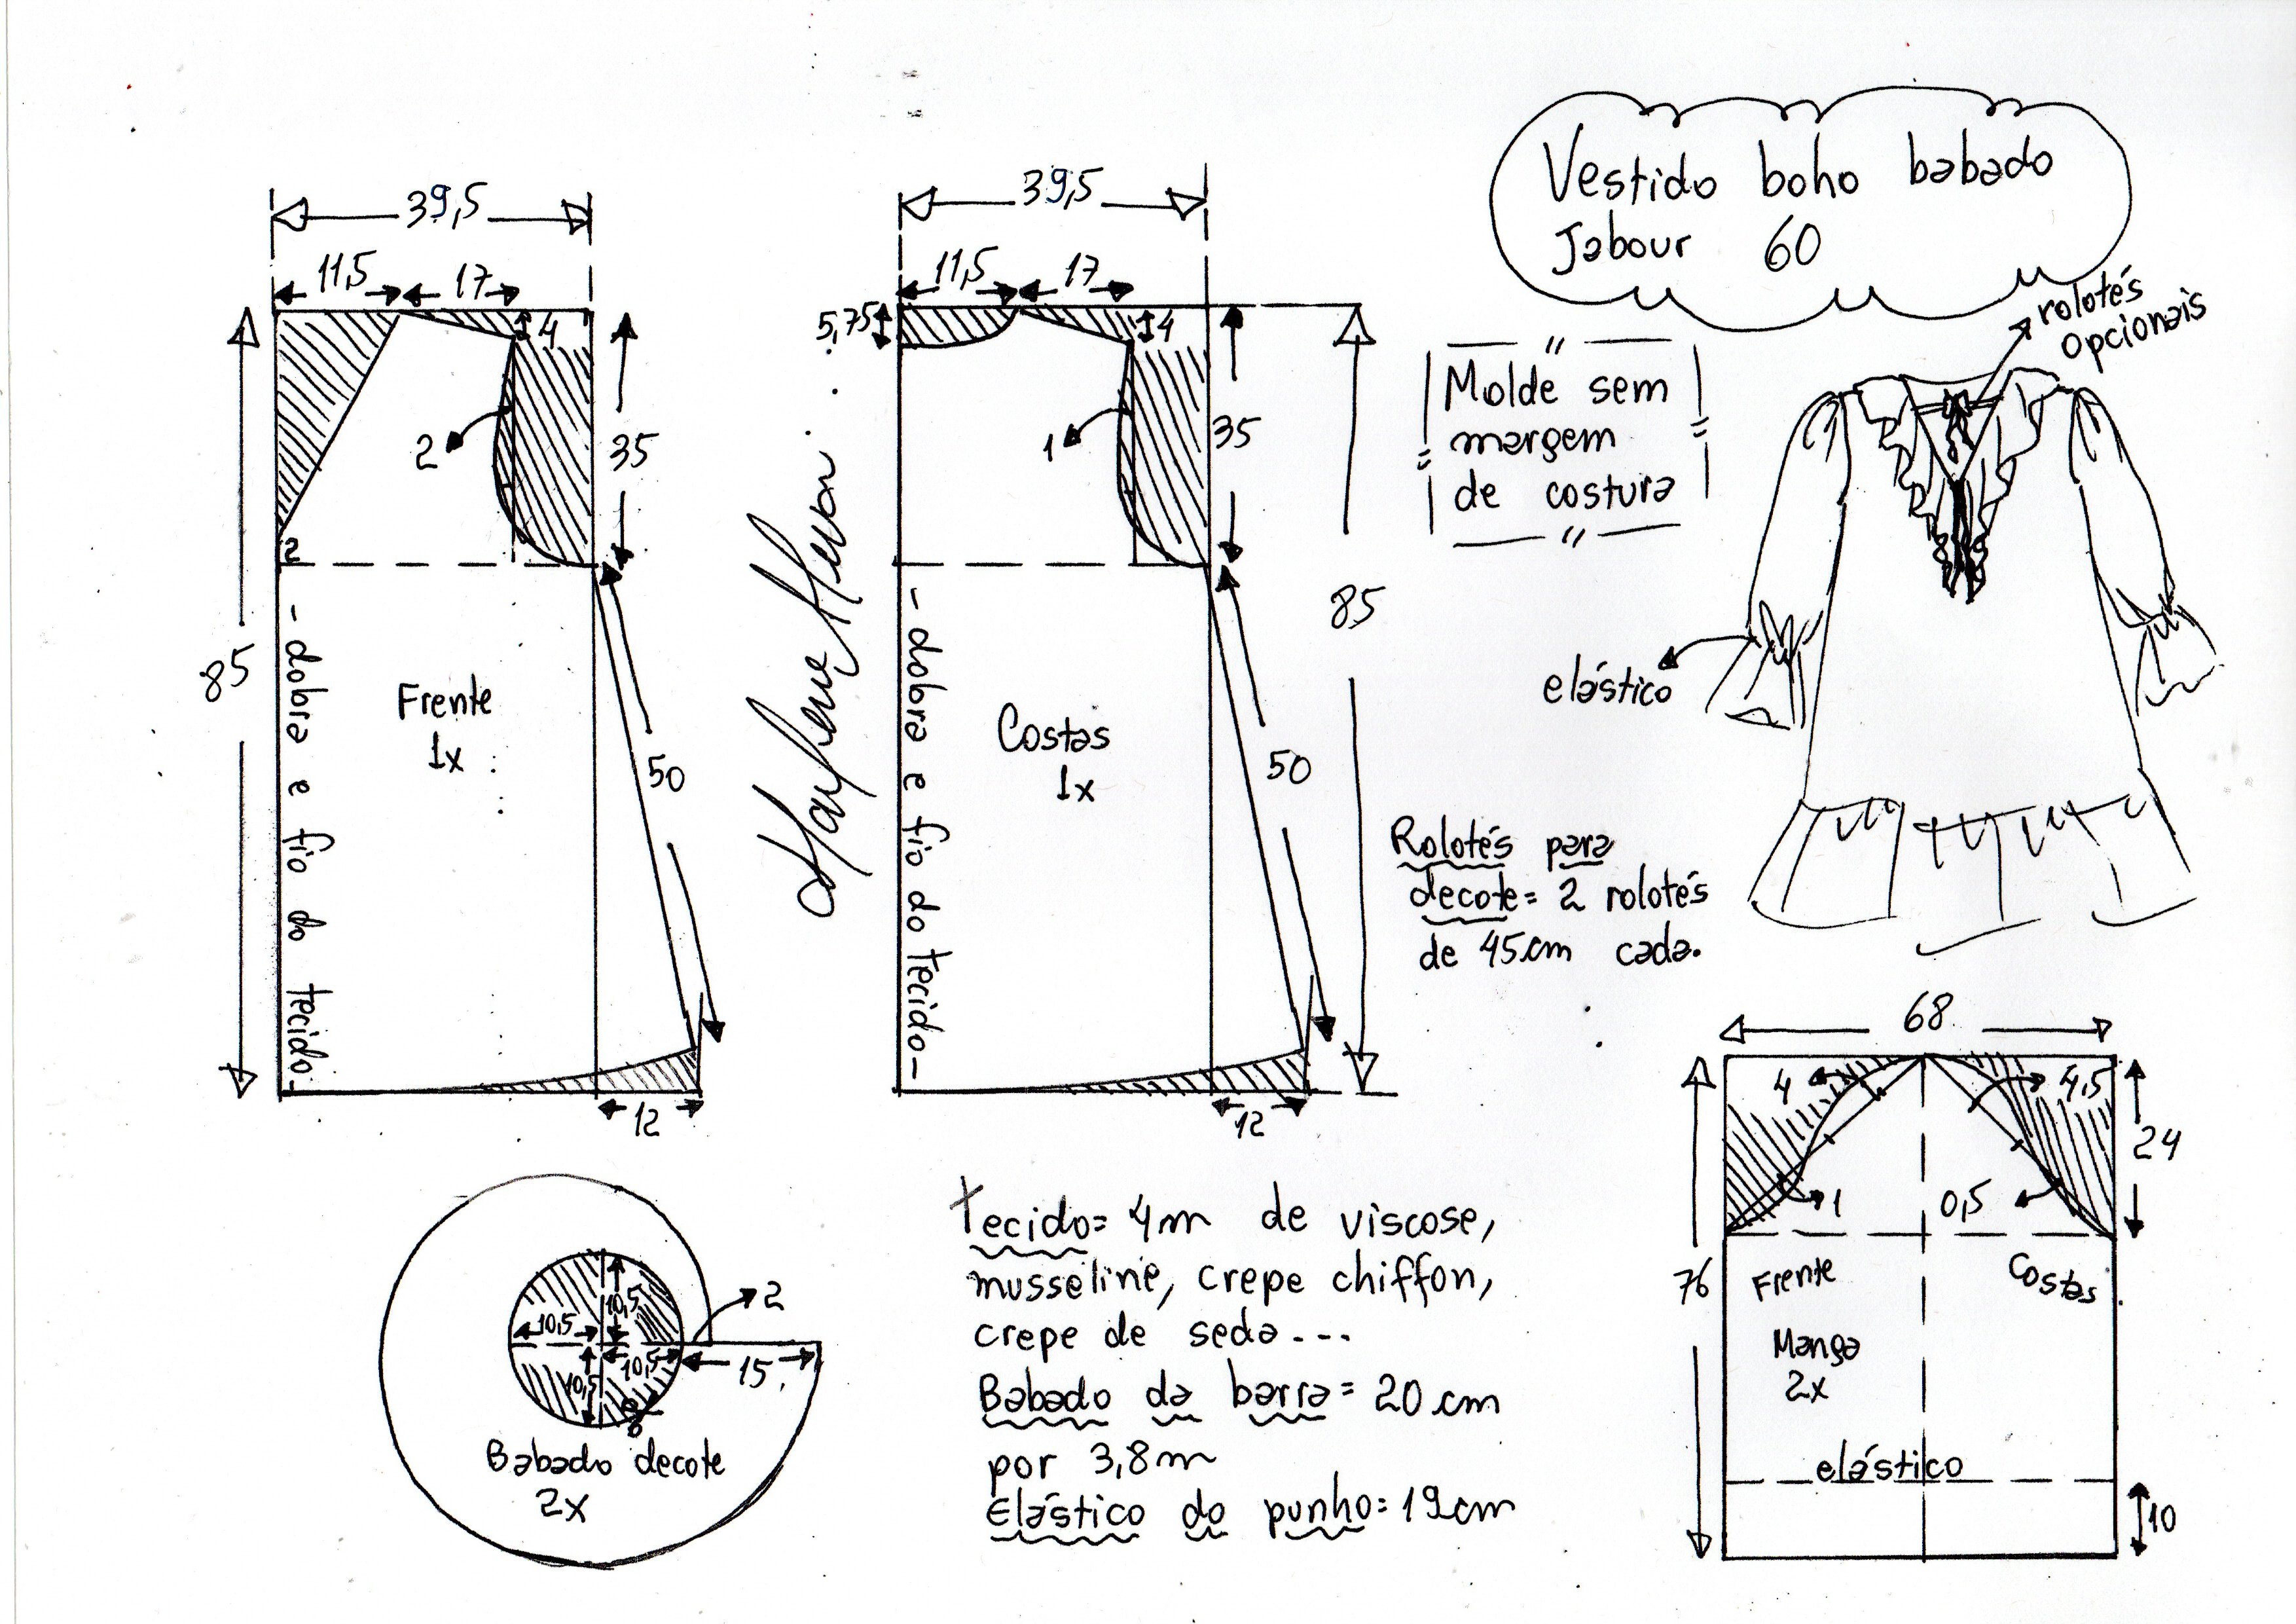 Vestido boho babado
Jabour 60
rolotés
opcionais
Molde sem
margem
de costura
elástico
39,5
11,5
17
4
2
35
2
85
- dobra e fio do tecido-
Frente
1x
50
12
39,5
11,5
17
5,75
4
1
35
85
- dobra e fio do tecido-
Costas
1x
50
12
Rolotés para
decote= 2 rolotés
de 45cm cada.
68
4
4,5
24
1
0,5
76
Frente
Costas
Manga
2x
elástico
10
10,5
10,5
10,5
10,5
2
15
Babado decote
2x
Tecido= 4m de viscose,
musseline, crepe chiffon,
crepe de seda...
Babado da barra= 20 cm
por 3,8m
Elástico do punho=19cm